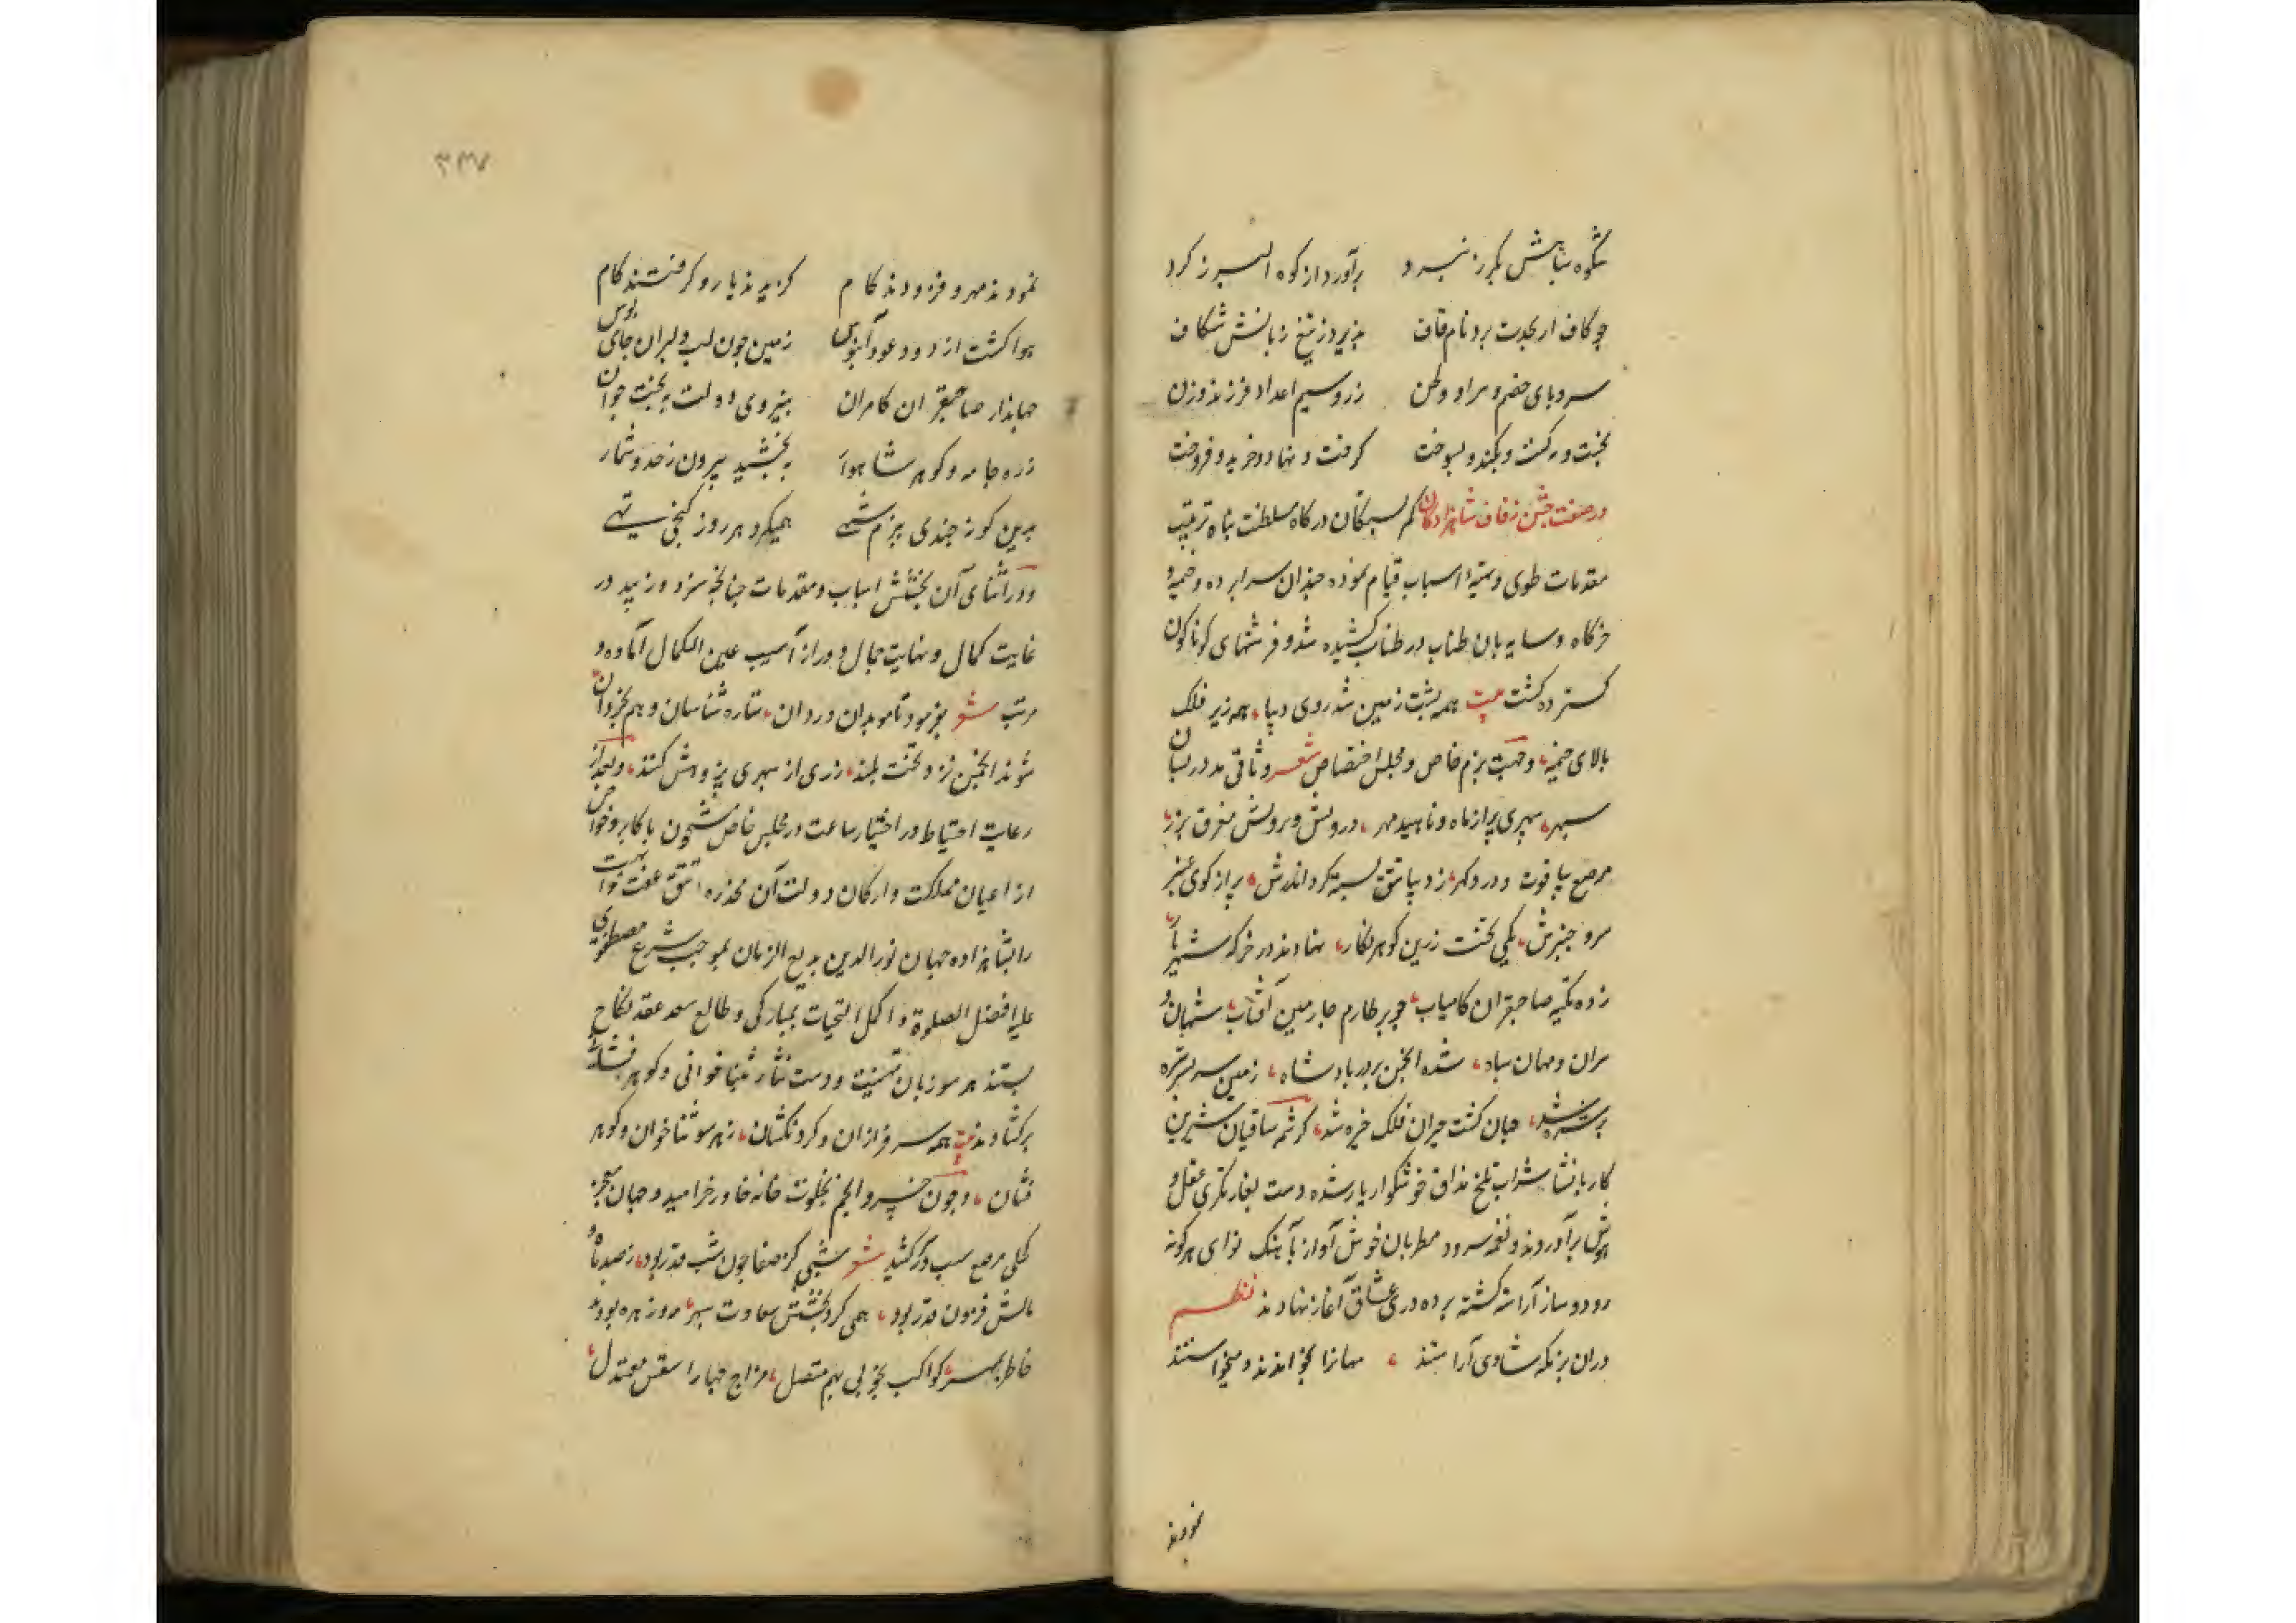 شکوه سپاهش بگرز نبرد برآورد از کوه البرز کرد
چو کاف ار بحدت برد نام قاف پذیرد ز تیغ زبانش شکاف
سر و پای خصم و سرا و وطن زر و سیم اعدا و فرزند و زن
گرفت و نهاد و خرید و فروخت
در صفت جشن زفاف شاهزادگان کمر بستگان درگاه سلطنت پناه ترتیب
مقدمات طوی و تهیه اسباب قیام نموده چندان سراپرده و خیمه و
خرگاه و سایه بان طناب در طناب کشیده شد و فرشهای کوناکون
گسترده گشت بیت همه پشت زمین شد روی دیبا همه زیر فلک
بالای خیمه و جهت بزم خاص و مجلس اختصاص شعر وثاقی مدور بسان
سپهر سپهری پر از ماه و ناهید و مهر درونش و برونش مغرق بزر
مرصع بیاقوت و در و گهر ز دیبا تتق بسته گرد اندرش پر از گوی عنبر
سر و چنبرش یکی تخت زرین گوهر نگار نهادند در خرگه شهریار
زده تکیه صاحبقران کامیاب چو بر طارم چارمین آفتاب شهان و
سران و مهان سپاه شده انجمن بر در پادشاه زمین سر بسر
جهان گشت حیران فلک خیره شد کرشمه ساقیان شیرین
کار با نشاء شراب تلخ مذاق خوشگوار یار شده دست بغارتگری عقل و
هوش برآوردند و نغمه سرود مطربان خوش آواز باهنگ نوای هرگونه
رود و ساز آراسته گشته پرده دری عشاق آغاز نهادند نظم
در آن بزمگه شادی آراستند مهانرا بخواندند و می خواستند
نمودند
۳۳۷
نمودند مهر و فزودند کام گزیدند یار و گرفتند کام
هوا گشت از دود عود آبنوس زمین چون لب دلبران جای بوس
جهاندار صاحبقران کامران بنیروی دولت ببخت جوان
زر و جامه و گوهر شاهوار ببخشید بیرون ز حد و شمار
برین گونه چندی ببزم شهی همیکرد هر روز گنجی تهی
و در اثنای آن بخشش اسباب و مقدمات چنانچه سزد و زیبد در
غایت کمال و نهایت جمال و دور از آسیب عین الکمال آماده و
مرتب شعر بفرمود تا موبدان و ردان ستاره شناسان و هم بخردان
شوند انجمن نزد تخت بلند ز ری از سپهری پژوهش کنند و بعد از
رعایت احتیاط در اختیار ساعت در مجلس خاص مشحون باکابر و خواص
از اعیان مملکت و ارکان دولت آن مخدره تتق عفت
را بشاهزاده جهان نور الدین بدیع الزمان بموجب شرع مصطفوی
علیه افضل الصلوة و اکمل التحیات بمبارکی و طالع سعد عقد نکاح
بستند هر سو زبان تهنیت و دست نثار بثنا خوانی و گوهر فشانی
برگشادند بیت همه سرفرازان و گردنکشان ز هر سو ثناخوان و گوهر
فشان و چون خسرو انجم بخلوت خانه خاور خرامید و جهان
کلی مرصع شب در کشید شعر شبی کز صفا چون شب قدر بود ز صد ماه و
سالش فزون قدر بود همی کرد بخشش سعادت سپهر
کواکب بخوبی بهم متصل مزاج جهان معتدل